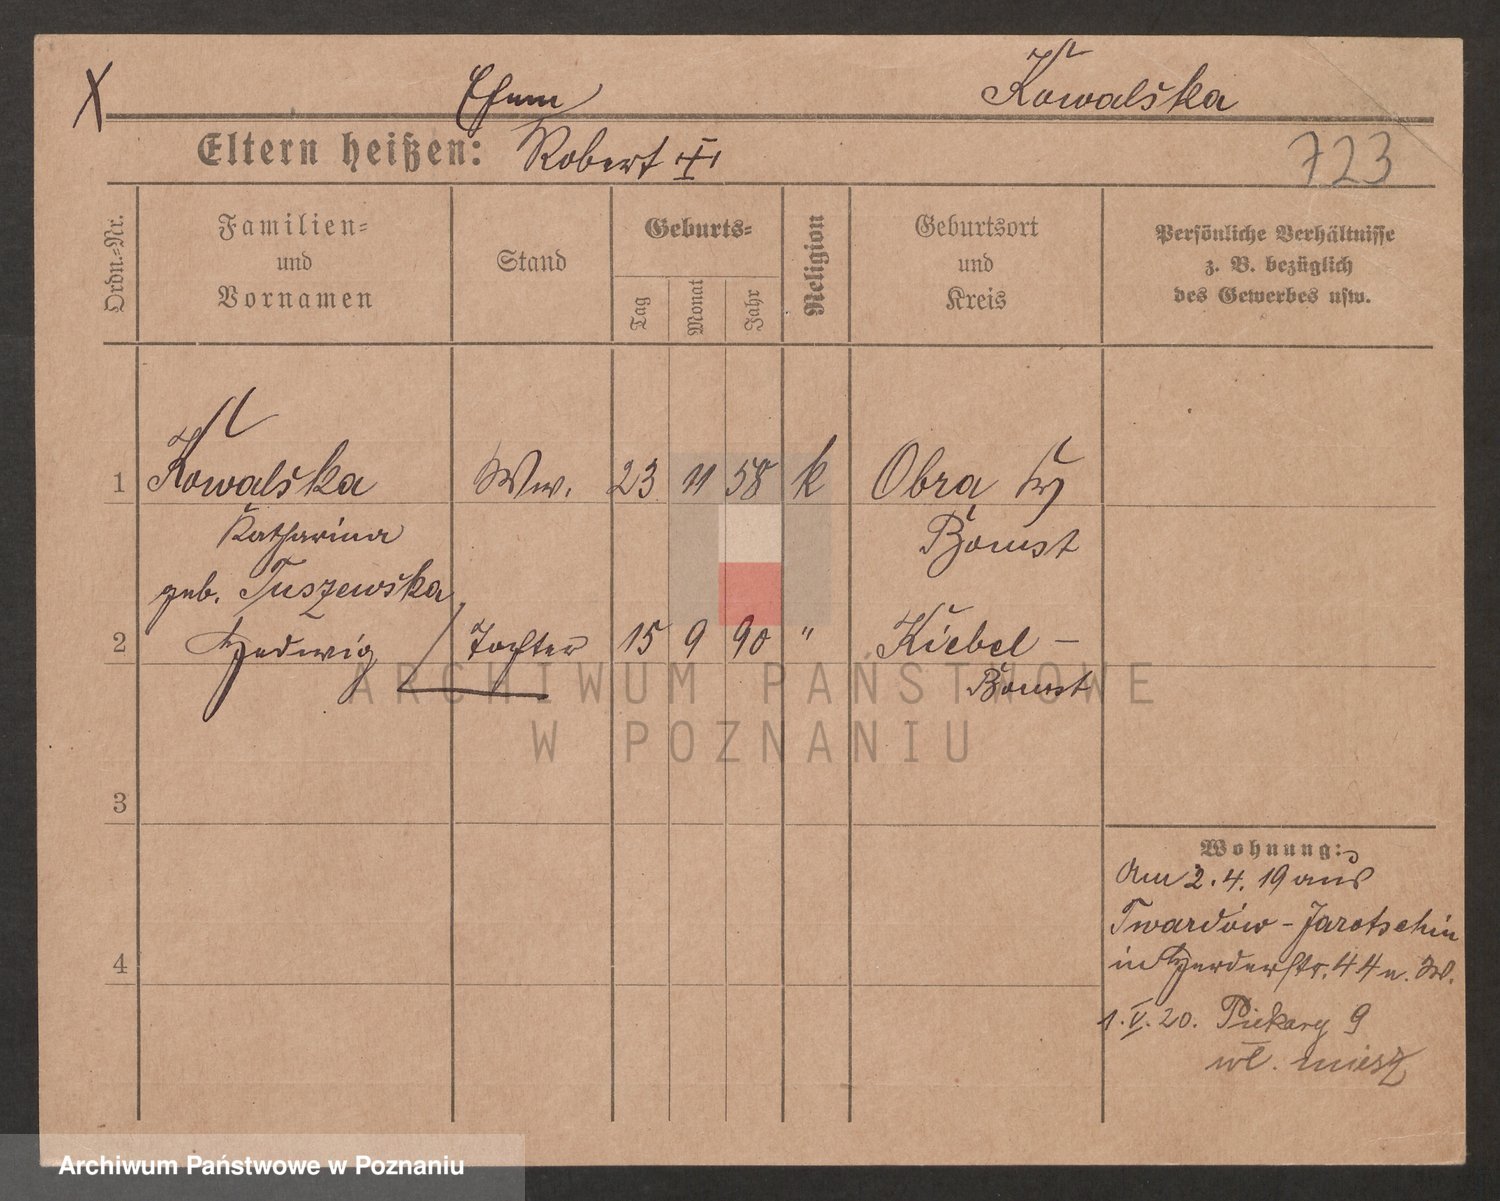 X Ehem Kowalska
Eltern heißen: Robert
723
Ordn.-Nr.
Familien=
und
Vornamen
Stand
Geburts=
Tag
Monat
Jahr
Religion
Geburtsort
und
Kreis
Persönliche Verhältnisse
z. B. bezüglich
des Gewerbes usw.
1 Kowalska Ww. 23 11 58 k Obra
Katharina Bomst
geb. Tuszewska
2 Hedwig / Tochter 15 9 90 " Kiebel –
Bomst
3
4
Wohnung:
Am 2.4.19 aus
Twardów - Jarotschin
in Herderstr. 44 e. W.
1.V.20. Piekary 9
wł. miesz
ARCHIWUM PAŃSTWOWE
W POZNANIU
Archiwum Państwowe w Poznaniu